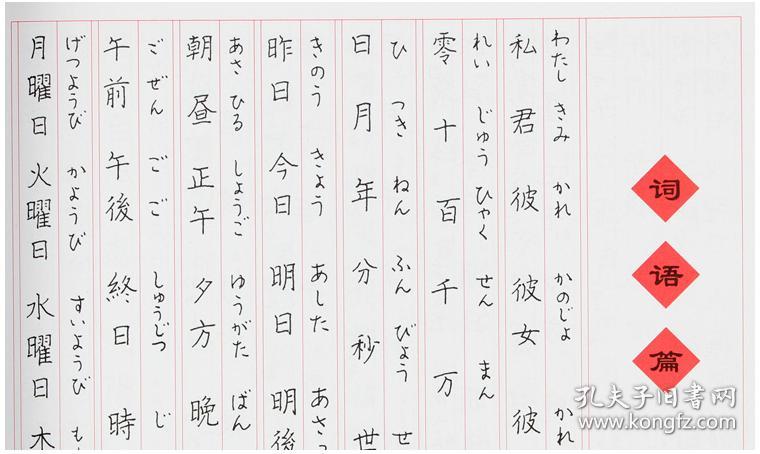 词语篇
わたし きみ かれ かのじょ かれ
私 君 彼 彼女 彼
れい じゅう ひゃく せん まん
零 十 百 千 万
ひ つき ねん ふん びょう せ
日 月 年 分 秒 世
きのう きょう あした あさっ
昨日 今日 明日 明後
あさ ひる しょうご ゆうがた ばん
朝 昼 正午 夕方 晩
ごぜん ごご しゅうじつ じ
午前 午後 終日 時
げつようび かようび すいようび も
月曜日 火曜日 水曜日 木
孔夫子旧书网
www.kongfz.com